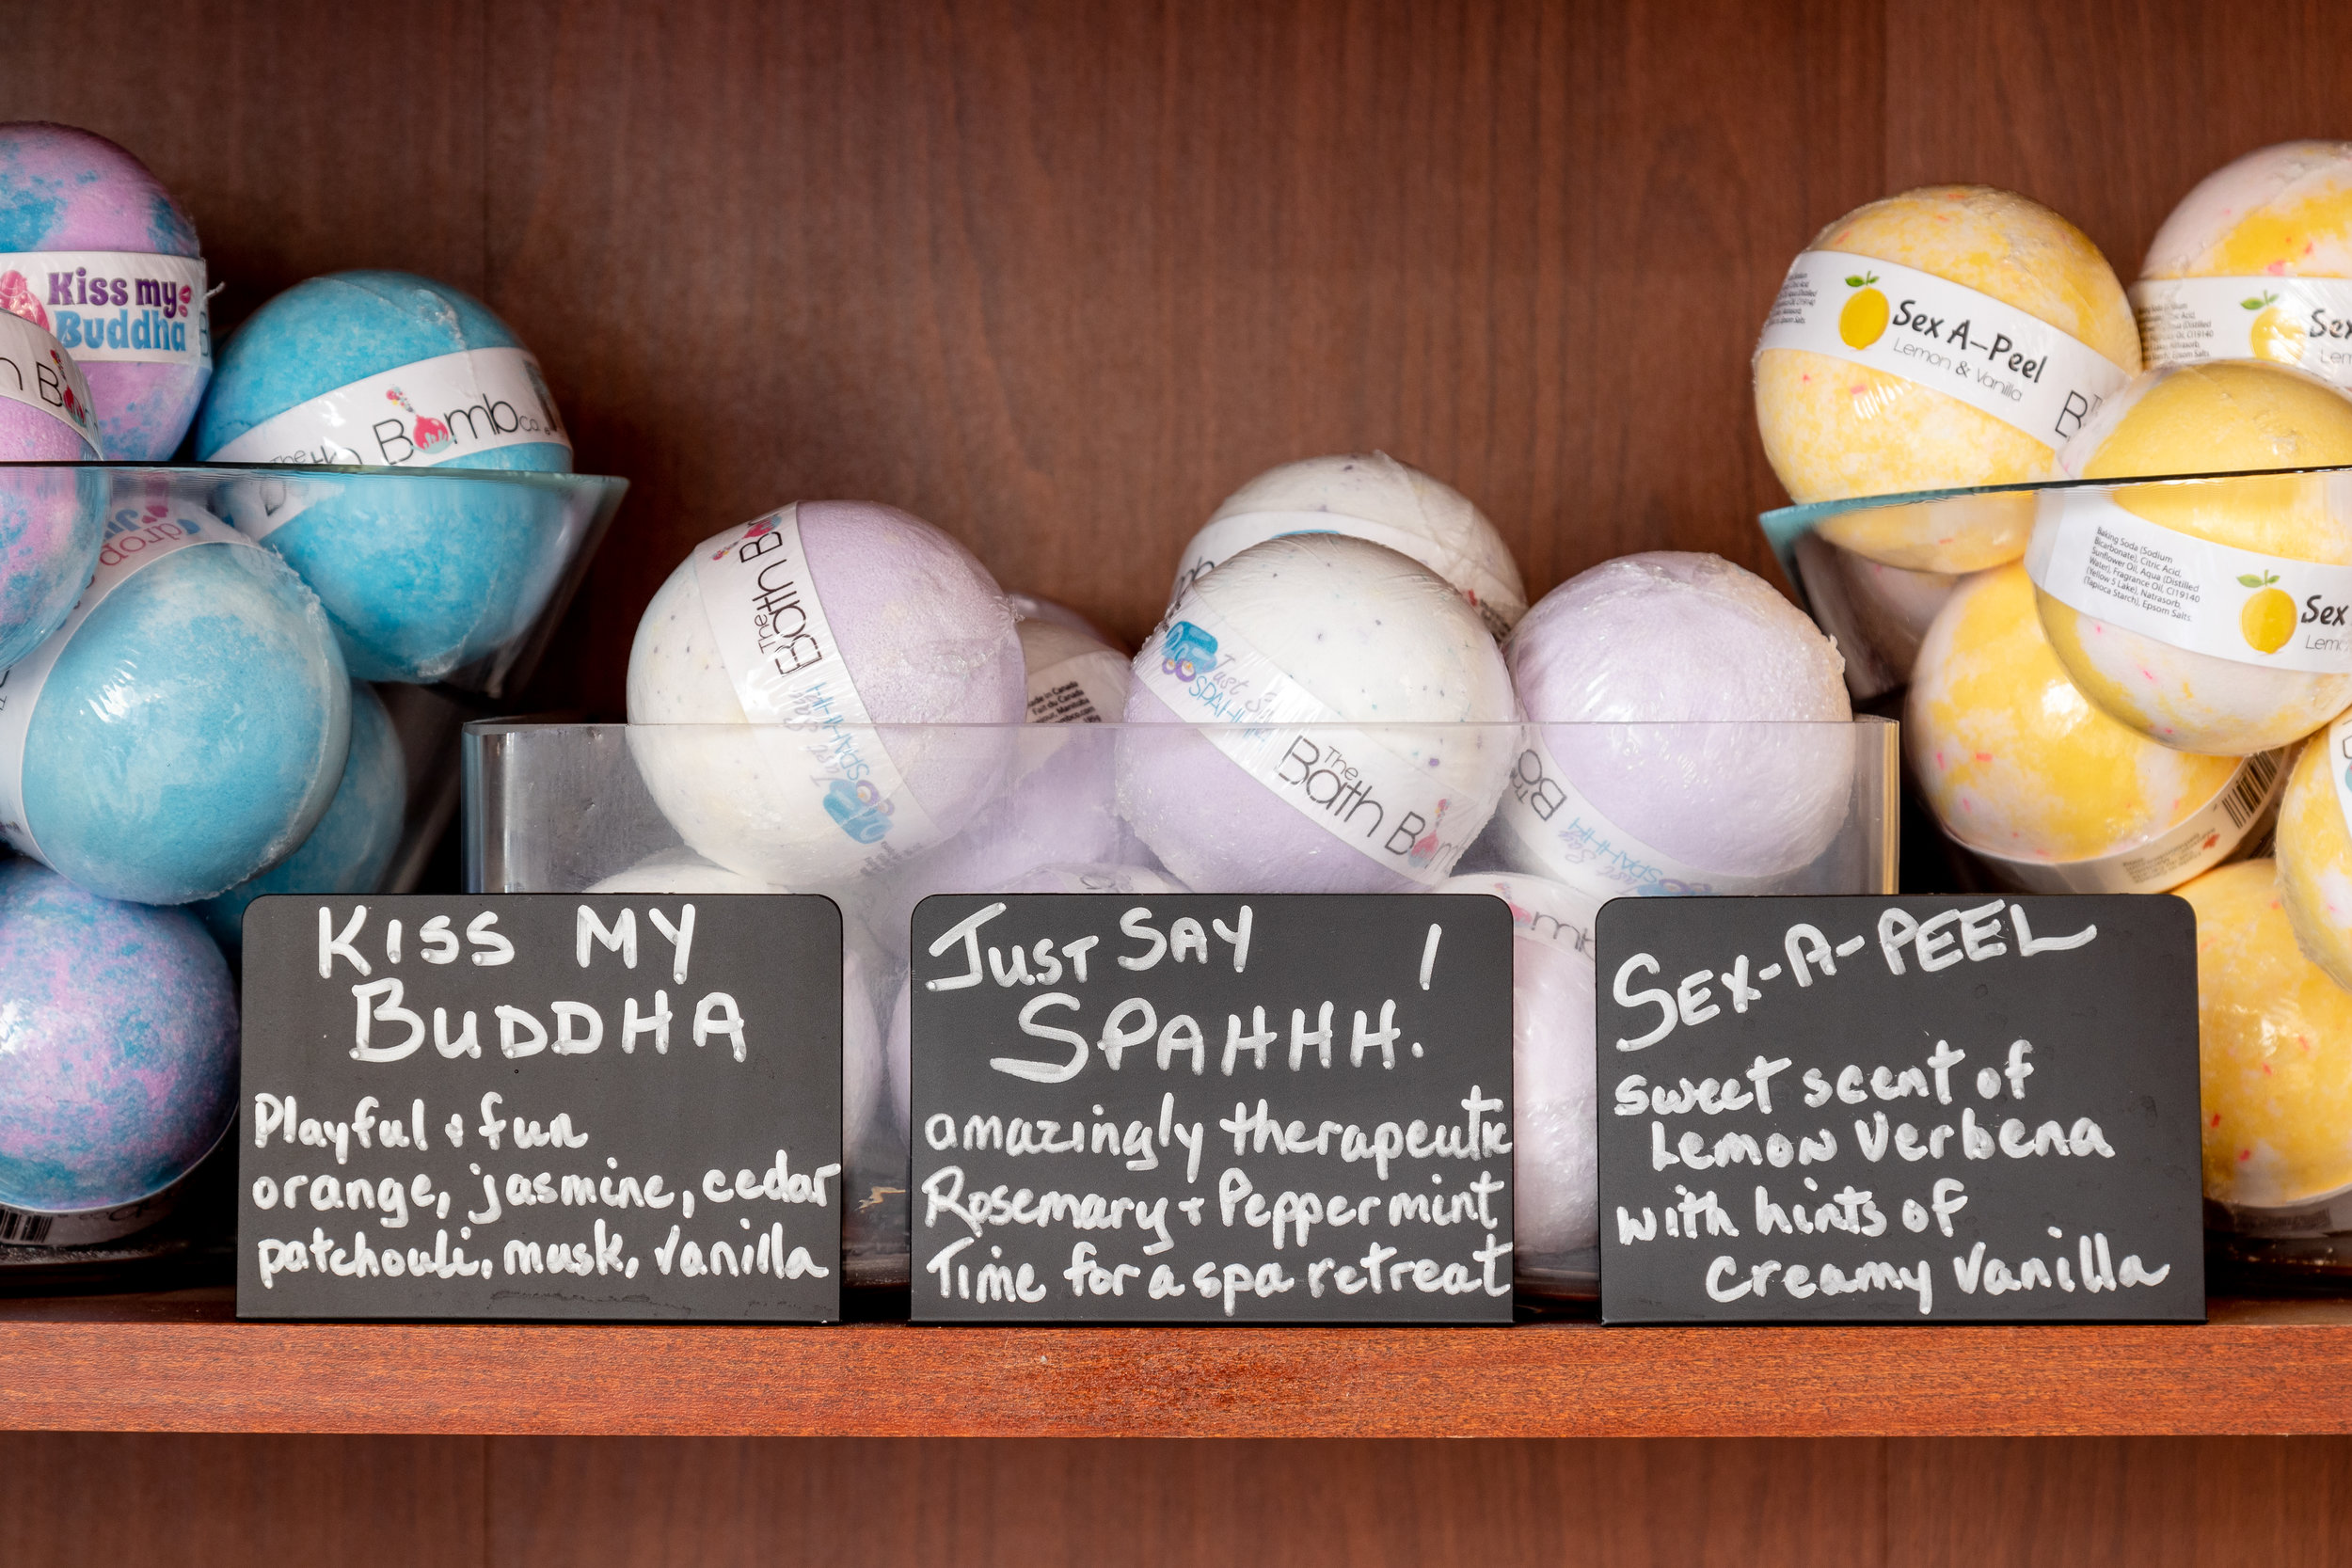 Kiss my
Buddha
The
Bath Bomb co.
The
Bath Bo
Just Say
SPAHHH
The
Bath Bom
SPAHHH
Made in Canada
Sex A-Peel
Lemon & Vanilla
Sex
Lem
Baking Soda (Sodium
Bicarbonate), Citric Acid,
Sunflower Oil, Aqua (Distilled
Water), Fragrance Oil, CI19140
(Yellow 5 Lake), Natrasorb,
(Tapioca Starch), Epsom Salts.
Sex
Lem
KISS MY
BUDDHA
Playful + fun
orange, jasmine, cedar
patchouli, musk, vanilla
JUST SAY
SPAHHH!
amazingly therapeutic
Rosemary + Peppermint
Time for a spa retreat
SEX-A-PEEL
sweet scent of
Lemon Verbena
with hints of
Creamy Vanilla